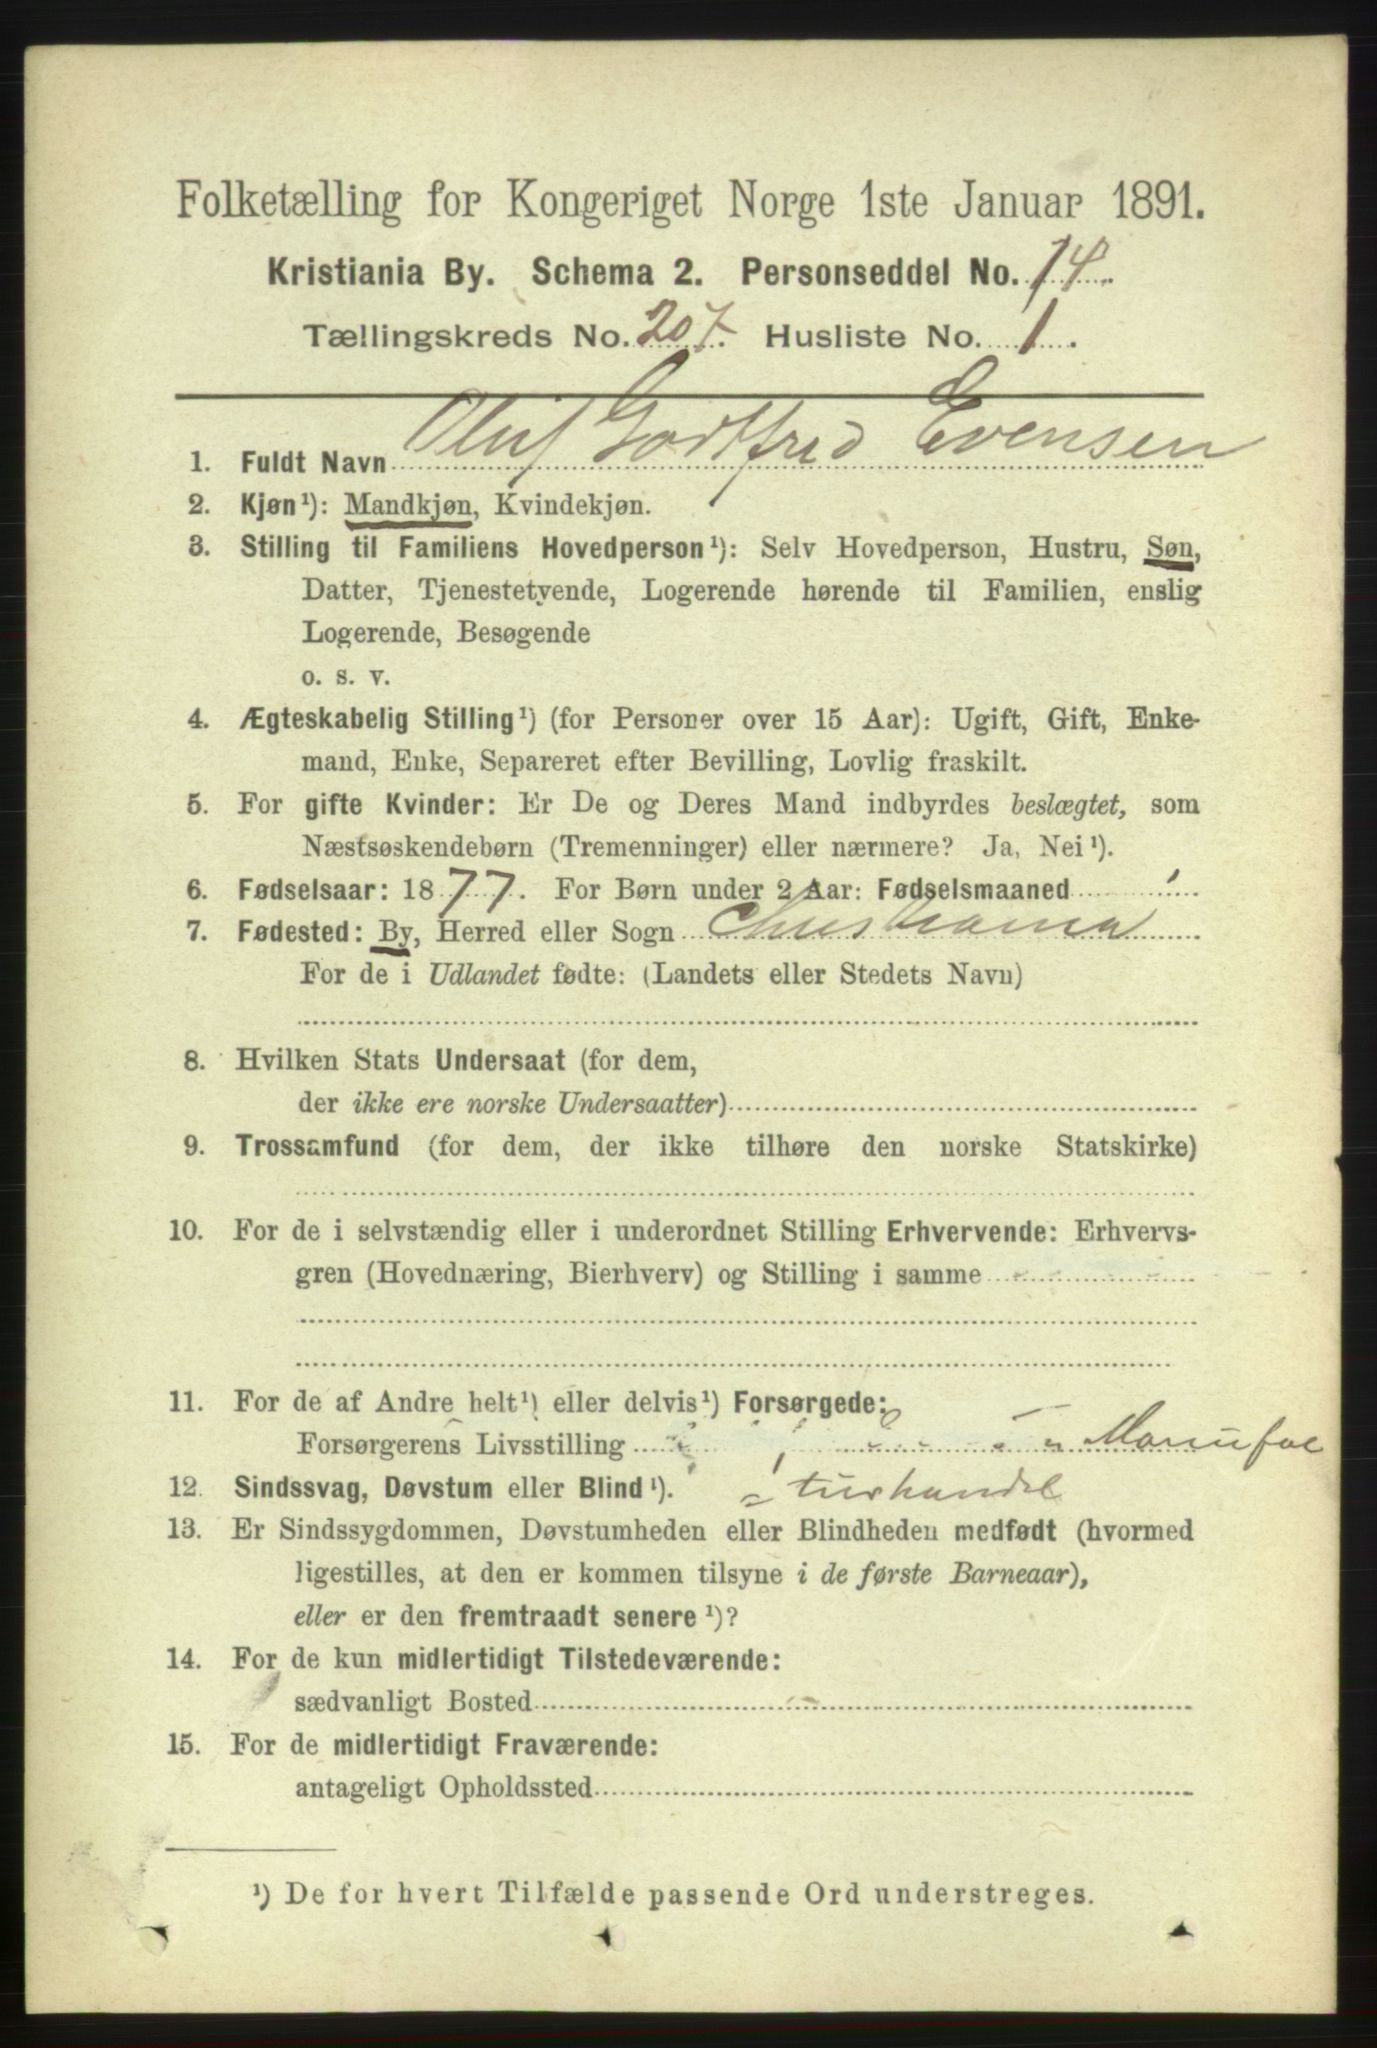 Folketælling for Kongeriget Norge 1ste Januar 1891.
Kristiania By. Schema 2. Personseddel No. 14.
Tællingskreds No. 207. Husliste No. 1.
1. Fuldt Navn Oluf Godtfred Evensen
2. Kjøn¹): Mandkjøn, Kvindekjøn.
3. Stilling til Familiens Hovedperson¹): Selv Hovedperson, Hustru, Søn,
Datter, Tjenestetyende, Logerende hørende til Familien, enslig
Logerende, Besøgende
o. s. v.
4. Ægteskabelig Stilling¹) (for Personer over 15 Aar): Ugift, Gift, Enke-
mand, Enke, Separeret efter Bevilling, Lovlig fraskilt.
5. For gifte Kvinder: Er De og Deres Mand indbyrdes beslægtet, som
Næstsøskendebørn (Tremenninger) eller nærmere? Ja, Nei¹).
6. Fødselsaar: 1877. For Børn under 2 Aar: Fødselsmaaned
7. Fødested: By, Herred eller Sogn Christiania
For de i Udlandet fødte: (Landets eller Stedets Navn)
8. Hvilken Stats Undersaat (for dem,
der ikke ere norske Undersaatter)
9. Trossamfund (for dem, der ikke tilhøre den norske Statskirke)
10. For de i selvstændig eller i underordnet Stilling Erhvervende: Erhvervs-
gren (Hovednæring, Bierhverv) og Stilling i samme
11. For de af Andre helt¹) eller delvis¹) Forsørgede:
Forsørgerens Livsstilling Manufac
12. Sindssvag, Døvstum eller Blind¹). = turhandel
13. Er Sindssygdommen, Døvstumheden eller Blindheden medfødt (hvormed
ligestilles, at den er kommen tilsyne i de første Barneaar),
eller er den fremtraadt senere¹)?
14. For de kun midlertidigt Tilstedeværende:
sædvanligt Bosted
15. For de midlertidigt Fraværende:
antageligt Opholdssted
¹) De for hvert Tilfælde passende Ord understreges.